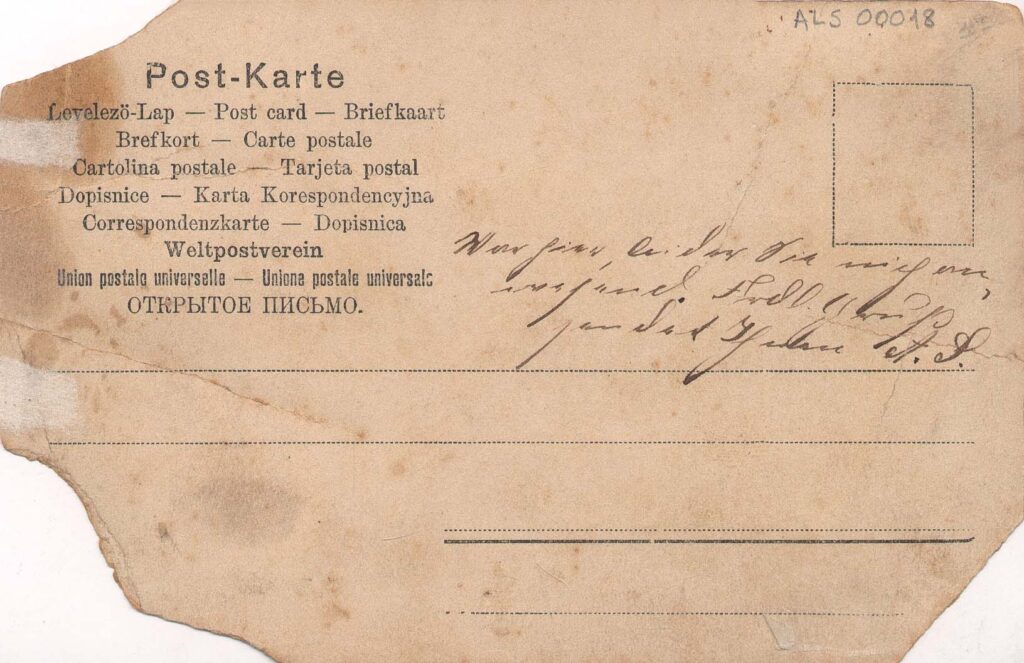 ALS 00018
Post-Karte
Levelező-Lap — Post card — Briefkaart
Brefkort — Carte postale
Cartolina postale — Tarjeta postal
Dopisnice — Karta Korespondencyjna
Correspondenzkarte — Dopisnica
Weltpostverein
Union postale universelle — Unione postale universale
ОТКРЫТОЕ ПИСЬМО.
War hier, leider Sie nicht an
wesend. Frdl. Gruß
sendet Ihnen A. S.